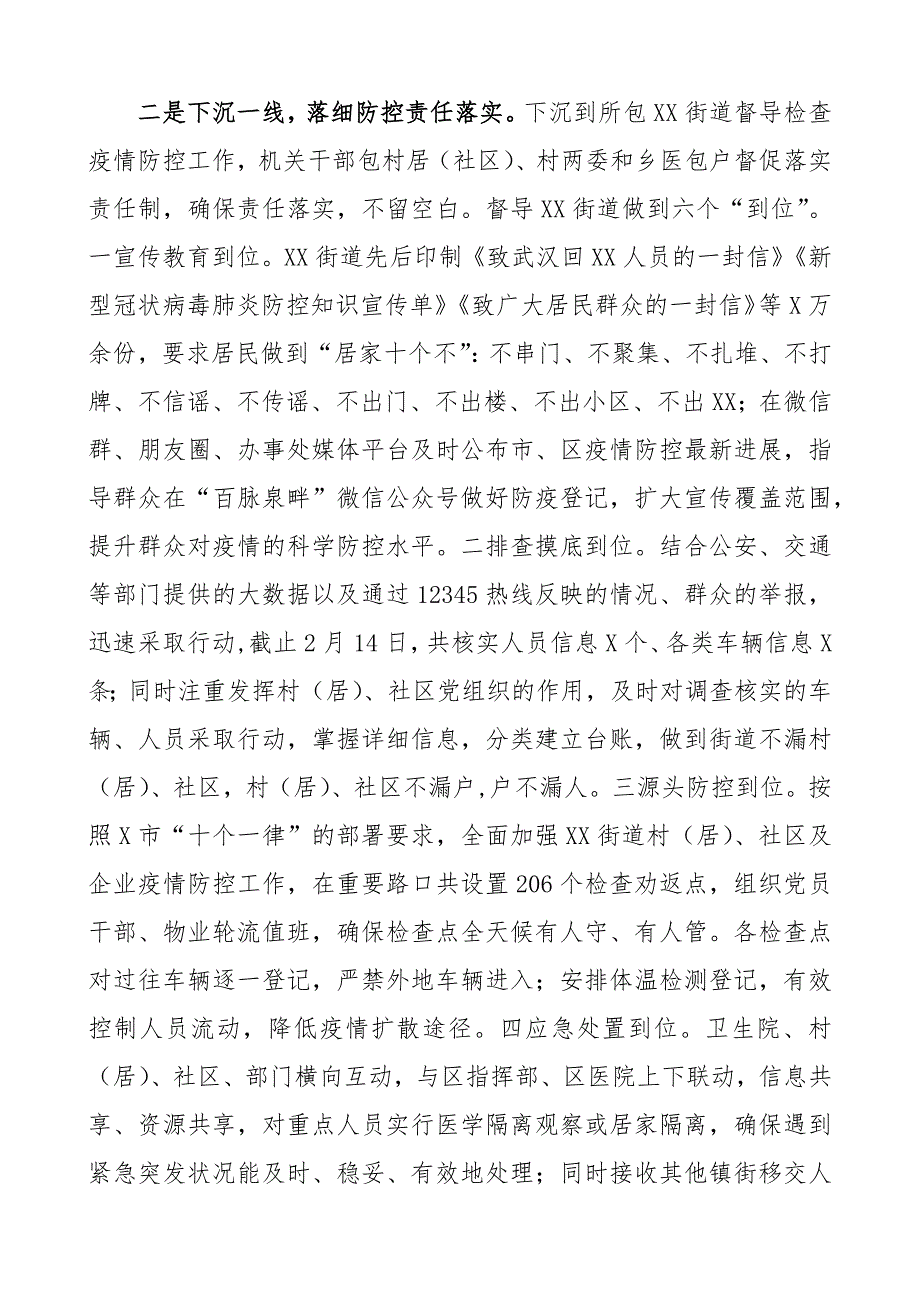 二是下沉一线，落细防控责任落实。下沉到所包XX街道督导检查
疫情防控工作，机关干部包村居（社区）、村两委和乡医包户督促落实
责任制，确保责任落实，不留空白。督导XX街道做到六个“到位”。
一宣传教育到位。XX街道先后印制《致武汉回XX人员的一封信》《新
型冠状病毒肺炎防控知识宣传单》《致广大居民群众的一封信》等X万
余份，要求居民做到“居家十个不”：不串门、不聚集、不扎堆、不打
牌、不信谣、不传谣、不出门、不出楼、不出小区、不出XX；在微信
群、朋友圈、办事处媒体平台及时公布市、区疫情防控最新进展，指
导群众在“百脉泉畔”微信公众号做好防疫登记，扩大宣传覆盖范围，
提升群众对疫情的科学防控水平。二排查摸底到位。结合公安、交通
等部门提供的大数据以及通过12345热线反映的情况、群众的举报，
迅速采取行动,截止2月14日，共核实人员信息X个、各类车辆信息X
条；同时注重发挥村（居）、社区党组织的作用，及时对调查核实的车
辆、人员采取行动，掌握详细信息，分类建立台账，做到街道不漏村
（居）、社区，村（居）、社区不漏户,户不漏人。三源头防控到位。按
照X市“十个一律”的部署要求，全面加强XX街道村（居）、社区及
企业疫情防控工作，在重要路口共设置206个检查劝返点，组织党员
干部、物业轮流值班，确保检查点全天候有人守、有人管。各检查点
对过往车辆逐一登记，严禁外地车辆进入；安排体温检测登记，有效
控制人员流动，降低疫情扩散途径。四应急处置到位。卫生院、村
（居）、社区、部门横向互动，与区指挥部、区医院上下联动，信息共
享、资源共享，对重点人员实行医学隔离观察或居家隔离，确保遇到
紧急突发状况能及时、稳妥、有效地处理；同时接收其他镇街移交人